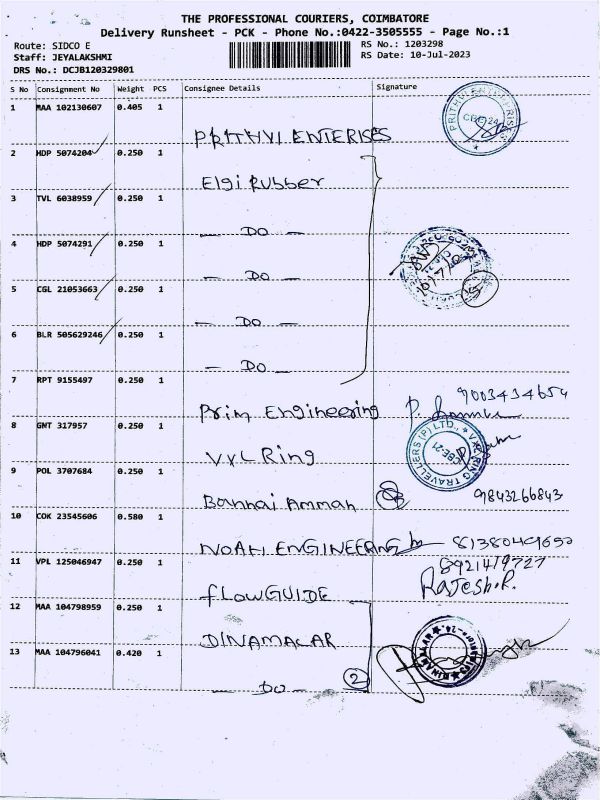 THE PROFESSIONAL COURIERS, COIMBATORE
Delivery Runsheet - PCK - Phone No.:0422-3505555 - Page No.:1
Route: SIDCO E
RS No.: 1203298
Staff: JEYALAKSHMI
RS Date: 10-Jul-2023
DRS No.: DCJB120329801
S No Consignment No Weight PCS Consignee Details Signature
1 MAA 102130607 0.405 1
PRITHVI ENTERISES
PRITHVI ENTERPRISES CBE-24
2 HDP 5074204 0.250 1
Elgi Rubber
3 TVL 6038959 0.250 1
— DO —
4 HDP 5074291 0.250 1
— DO —
5 CGL 21053663 0.250 1
— DO —
6 BLR 505629246 0.250 1
— DO —
7 RPT 9155497 0.250 1
Prim Engineering 9003434654
8 GNT 317957 0.250 1
VXL Ring
VXL RING TRAVELLERS (P) LTD., CBE-21
9 POL 3707684 0.250 1
Bannai Amman 9843266843
10 COK 23545606 0.580 1
NOAH ENGINEERING 8138049650
11 VPL 125046947 0.250 1
8921419727
FLOWGUIDE Rajesh.R.
12 MAA 104798959 0.250 1
DINAMALAR
DINAMALAR
13 MAA 104796041 0.420 1
— DO — 2